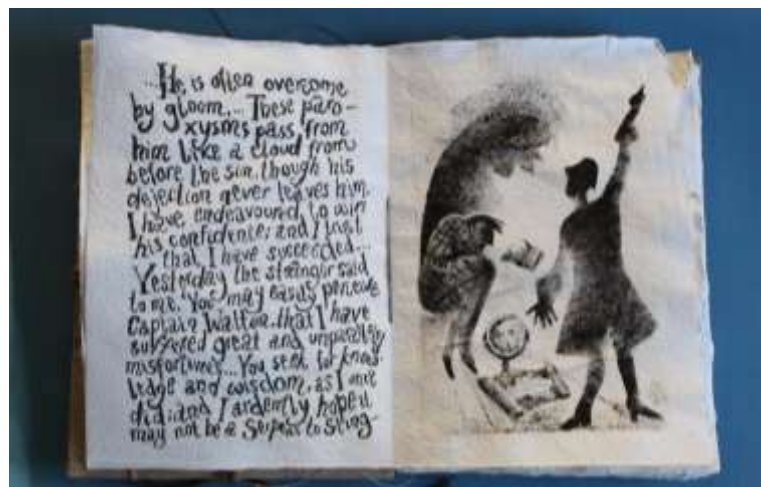 ...He is often overcome
by gloom... These paro-
xysms pass from
him like a cloud from
before the sun, though his
dejection never leaves him.
I have endeavoured to win
his confidence; and I trust
that I have succeeded...
Yesterday the stranger said
to me, You may easily perceive
Captain Walton, that I have
suffered great and
misfortunes... You seek for know-
ledge and wisdom, as I once
did; and I ardently hope
may not be a serpent to sting